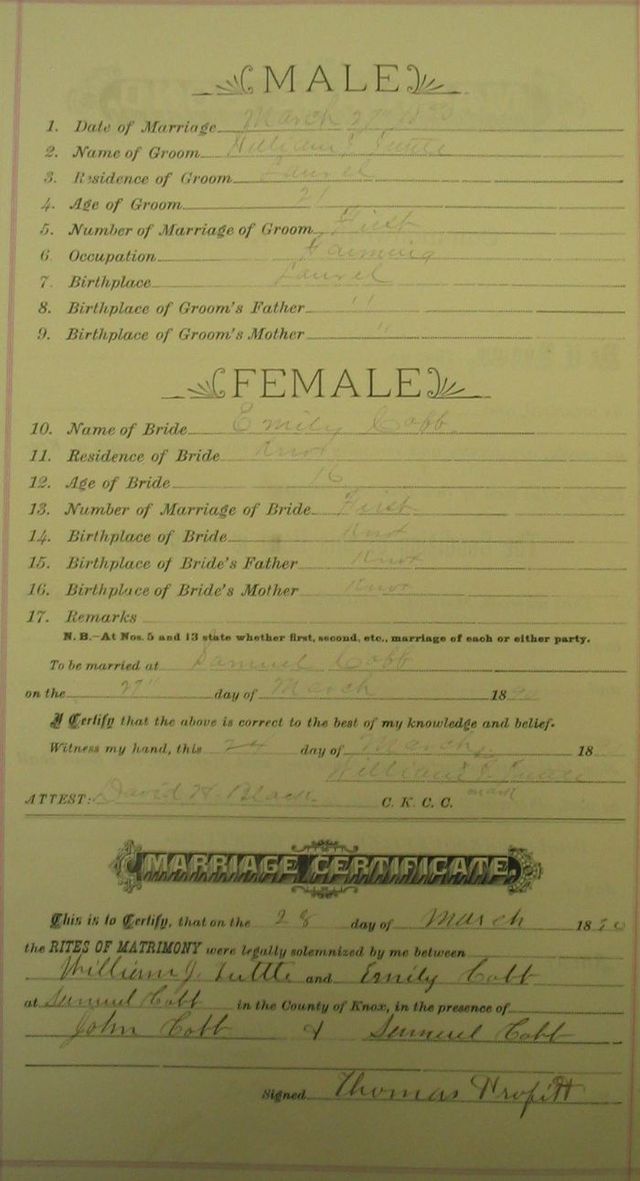 MALE
1. Date of Marriage March 27" 1890
2. Name of Groom William J. Tuttle
3. Residence of Groom Laurel
4. Age of Groom 21
5. Number of Marriage of Groom First
6. Occupation Farming
7. Birthplace Laurel
8. Birthplace of Groom's Father "
9. Birthplace of Groom's Mother "
FEMALE
10. Name of Bride Emily Cobb
11. Residence of Bride Knox
12. Age of Bride 16
13. Number of Marriage of Bride First
14. Birthplace of Bride Knox
15. Birthplace of Bride's Father Knox
16. Birthplace of Bride's Mother Knox
17. Remarks
N. B.—At Nos. 5 and 13 state whether first, second, etc., marriage of each or either party.
To be married at Samuel Cobb
on the 27" day of March 1890
I Certify that the above is correct to the best of my knowledge and belief.
Witness my hand, this 24 day of March, 18
William J. Tuttle
mark
ATTEST: David H. Black C. K. C. C.
MARRIAGE CERTIFICATE.
This is to Certify, that on the 28 day of March 1890
the RITES OF MATRIMONY were legally solemnized by me between
William J. Tuttle and Emily Cobb
at Samuel Cobb in the County of Knox, in the presence of
John Cobb & Samuel Cobb
Signed Thomas Profitt